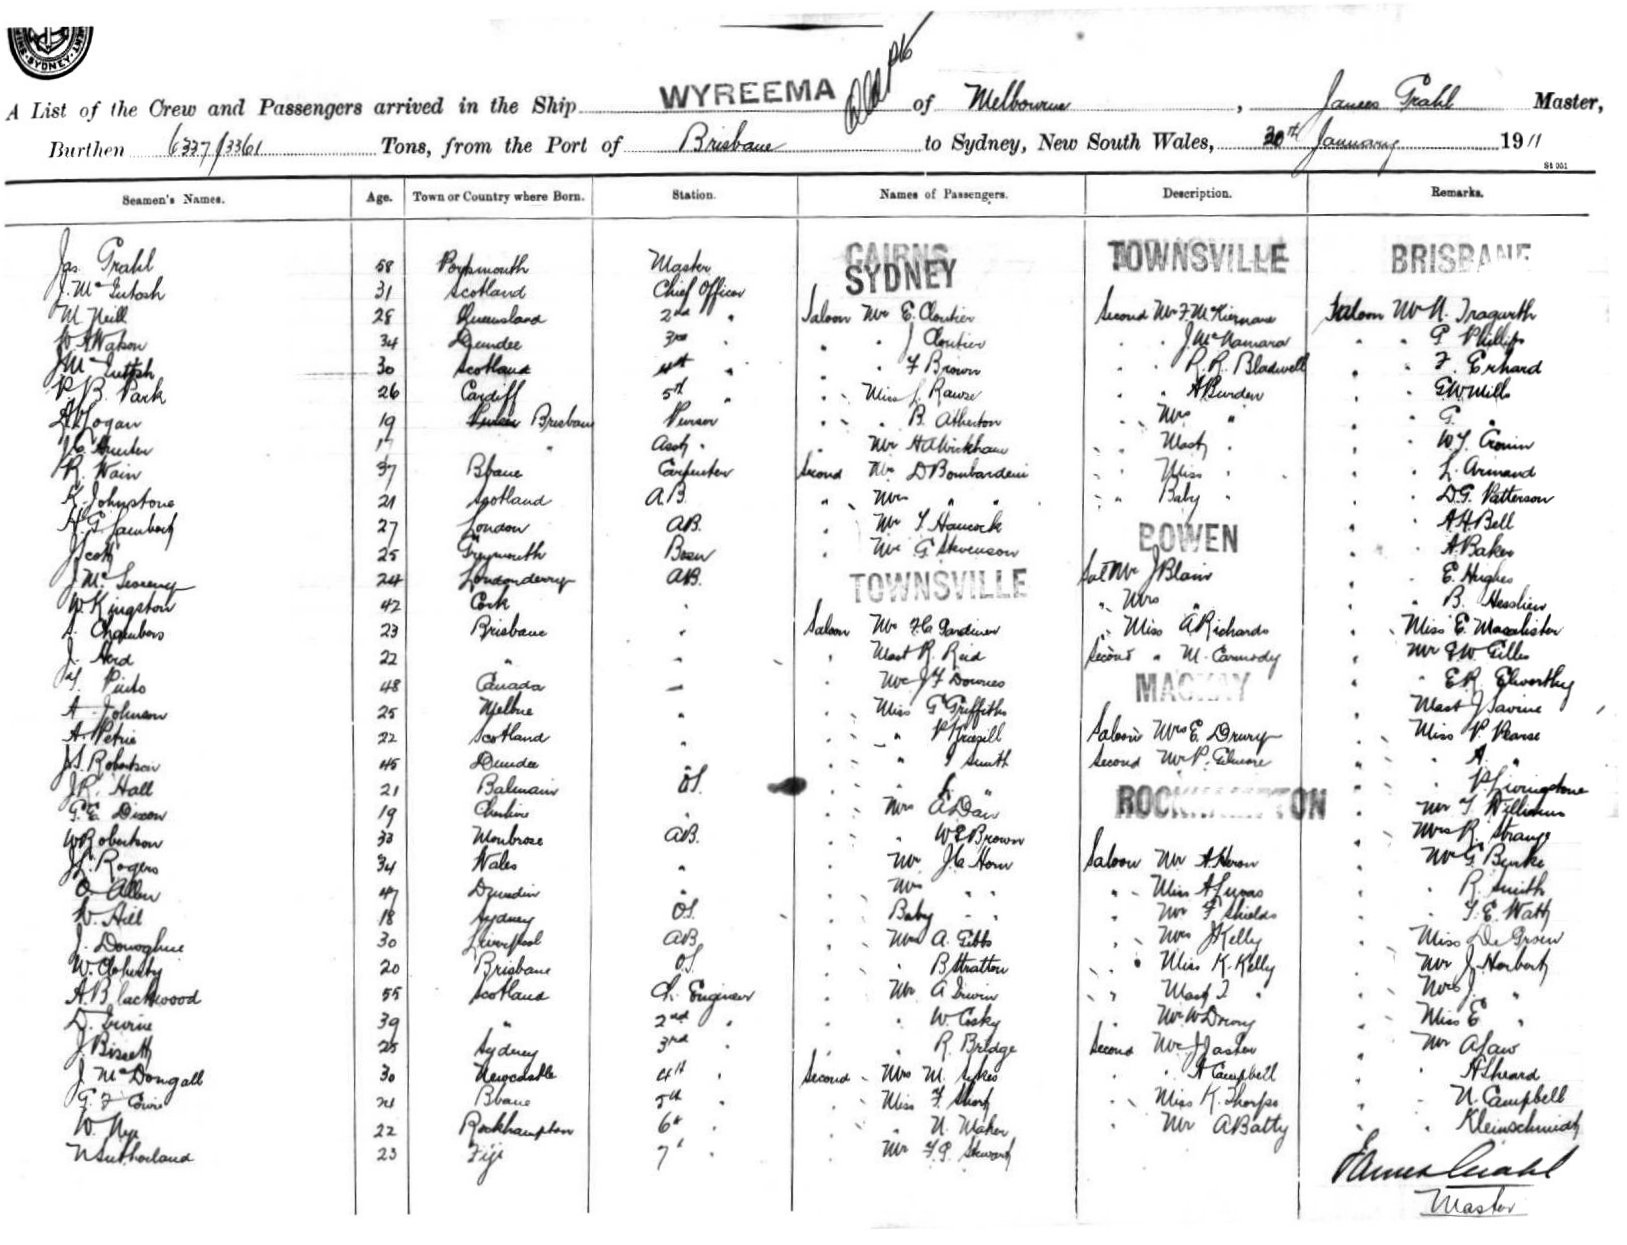 SYDNEY
A List of the Crew and Passengers arrived in the Ship WYREEMA of Melbourne, James Grahl Master,
Burthen 6337/3361 Tons, from the Port of Brisbane to Sydney, New South Wales, 30th January 1911
Seamen's Names. Age. Town or Country where Born. Station. Names of Passengers. Description. Remarks.
CAIRNS TOWNSVILLE BRISBANE
SYDNEY
Jas Grahl 58 Portsmouth Master
J. McIntosh 31 Scotland Chief Officer
M Neill 28 Queensland 2nd " Saloon Mr E. Cloutier Second Mr F McKiernane Saloon Mr N. Tragurth
W A Watson 34 Dundee 3rd " " J Cloutier " J McNamara " G Phillips
J McIntosh 30 Scotland 4th " " F Brown " R. R. Bladwell " F. Erhard
P. B. Park 26 Cardiff 5th " Miss L Rawse " A Burden " G W Mills
Logan 19 Brisbane Purser " B. Atherton " Mrs " " G. "
Hunter 17 " Asst " Mr H A Wickham " Mast " " W. J. Cronin
R. Wain 37 Bbane Carpenter Second Mr D Bombardeni " Miss " " L. Armand
R. Johnstone 21 Scotland A.B. " Mrs " " " Baby " " D. G. Patterson
27 London AB. " Mr T Hancock " A H Bell
J Scott 25 Greymouth Bosn " Mr G Stevenson BOWEN " A Baker
24 Londonderry AB. TOWNSVILLE Sal Mr J Blair " E. Hughes
W Kingston 42 Cork " " Mrs " " B. Hesslien
S. Chambers 23 Brisbane " Saloon Mr F C Gardiner " Miss A Richards " Miss E. Macalister
J. Herd 22 " " Mast R. Reid Second " M. Carmody Mr G W Gillis
48 Canada Mr J F Downes MACKAY " E. R. Elworthy
A. Johnson 25 Melbne " Miss G Griffiths Mast J Savine
A. Petrie 22 Scotland " " Saloon Mrs E. Drury Miss P. Pearse
J S. Robertson 45 Dundee " " Smith Second Mr P. Gilmore " A. "
J. R. Hall 21 Balmain OS. " L. " ROCKHAMPTON " P Livingstone
G. E. Dixon 19 Cheshire " Mrs A Daw Mr T Williams
W Robertson 33 Montrose AB. " W E Brown Mrs R. Strange
J L. Rogers 34 Wales " Mr J. C. Horn Saloon Mr A Heron Mr G Burke
O Allen 47 Dunedin " Mrs " " " Miss A Lucas " R. Smith
W. Hill 18 Sydney OS. Baby " " " Mr F Shields " T. E. Watt
J. Donoghue 30 Liverpool AB Mrs A. Gibbs " Mrs J Kelly Miss De Groen
W. 20 Brisbane OS " B Stratton " Miss K. Kelly Mr J. Herbert
A. Blackwood 55 Scotland Ch. Engineer Mr A Irwin " Mast J " Mrs J. "
D. Irvine 39 " 2nd " " W. Cosky " Mr W Drury " Miss E "
J Bissett 25 Sydney 3rd " " R. Bridge Second Mr J Jasten " Mr A Law
J. McDougall 30 Newcastle 4th " Second Mrs M. Sykes " A Campbell " A Sheard
G. F Cowie 21 Bbane 5th " Miss F. Short " Miss K. Thorpe " N. Campbell
W. Nye 22 Rockhampton 6th " " N. Maher " Mr A Batty " Kleinschmidt
N Sutherland 23 Fiji 7th " Mr F. P. Steward
James Grahl
Master